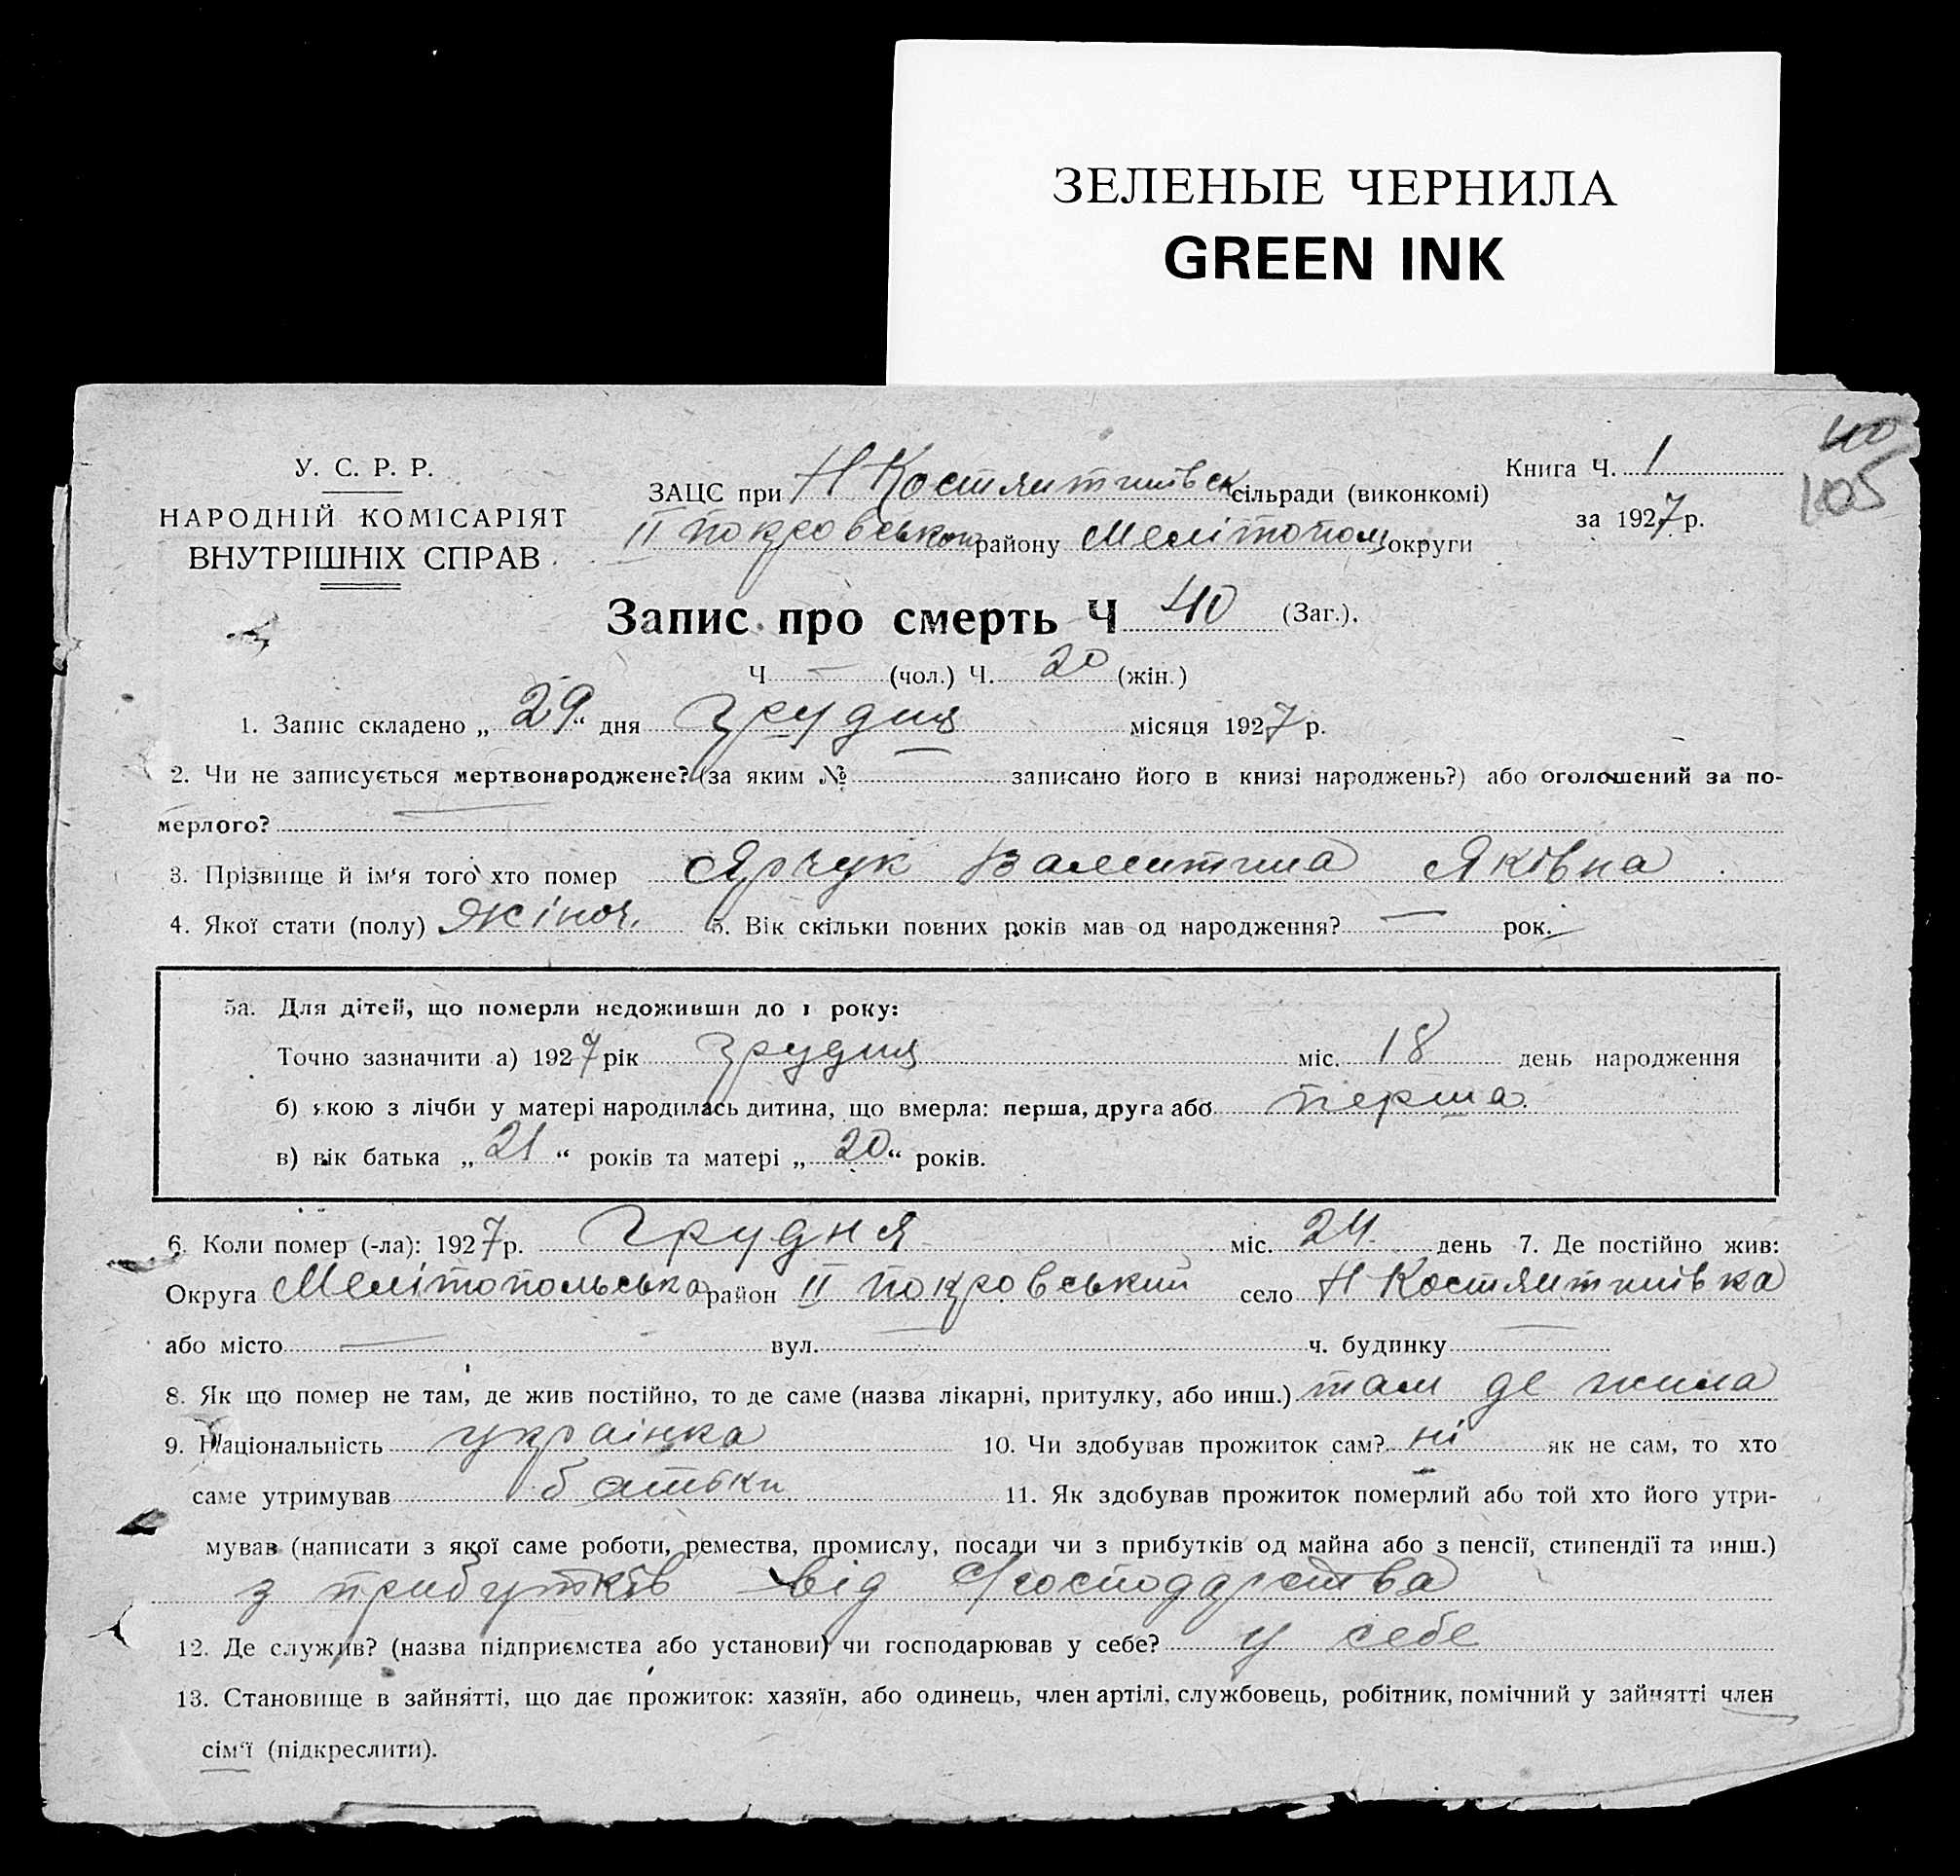 ЗЕЛЕНЫЕ ЧЕРНИЛА
GREEN INK
40
105
У. С. Р. Р.
НАРОДНІЙ КОМІСАРІЯТ
ВНУТРІШНІХ СПРАВ
Книга Ч. 1
за 1927 р.
ЗАЦС при Н Костянтинівск сільради (виконкомі)
ІІ покровськом району Мелітопол округи
Запис про смерть Ч 40 (Заг.).
Ч — (чол.) Ч. 20 (жін.)
1. Запис складено „ 29 “ дня грудня місяця 1927 р.
2. Чи не записується мертвонароджене? (за яким № — записано його в книзі народжень?) або оголошений за по-
мерлого? —
3. Прізвище й ім'я того хто помер Ярчук Валентина Яківна
4. Якої стати (полу) жіноч. 5. Вік скільки повних років мав од народження? — рок.
5а. Для дітей, що померли недоживши до 1 року:
Точно зазначити а) 1927 рік грудня міс. 18 день народження
б) якою з лічби у матері народилась дитина, що вмерла: перша, друга або перша.
в) вік батька „ 21 “ років та матері „ 20 “ років.
6. Коли помер (-ла): 1927 р. Грудня міс. 24 день 7. Де постійно жив:
Округа Мелітопольська район ІІ покровський село Н Костянтинівка
або місто — вул. — ч. будинку —
8. Як що помер не там, де жив постійно, то де саме (назва лікарні, притулку, або инш.) там де жила
9. Національність українка 10. Чи здобував прожиток сам? ні як не сам, то хто
саме утримував батьки 11. Як здобував прожиток померлий або той хто його утри-
мував (написати з якої саме роботи, ремества, промислу, посади чи з прибутків од майна або з пенсії, стипендії та инш.)
з прибутків від с/господарства
12. Де служив? (назва підприємства або установи) чи господарював у себе? у себе
13. Становище в зайнятті, що дає прожиток: хазяїн, або одинець, член артілі, службовець, робітник, помічний у зайнятті член
сім'ї (підкреслити).